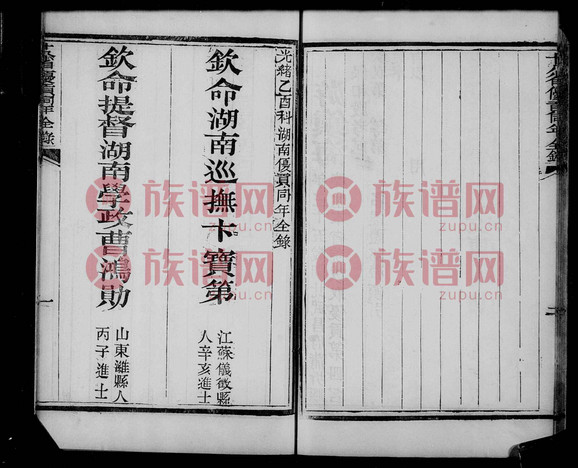 光緒乙酉科湖南優貢同年全錄
欽命湖南巡撫卞寶第
江蘇儀徵縣
人辛亥進士
欽命提督湖南學政曹鴻勛
山東濰縣人
丙子進士
一
族谱网
zupu.cn
族谱网
zupu.cn
族谱网
zupu.cn
族谱网
zupu.cn
族谱网
zupu.cn
族谱网
zupu.cn